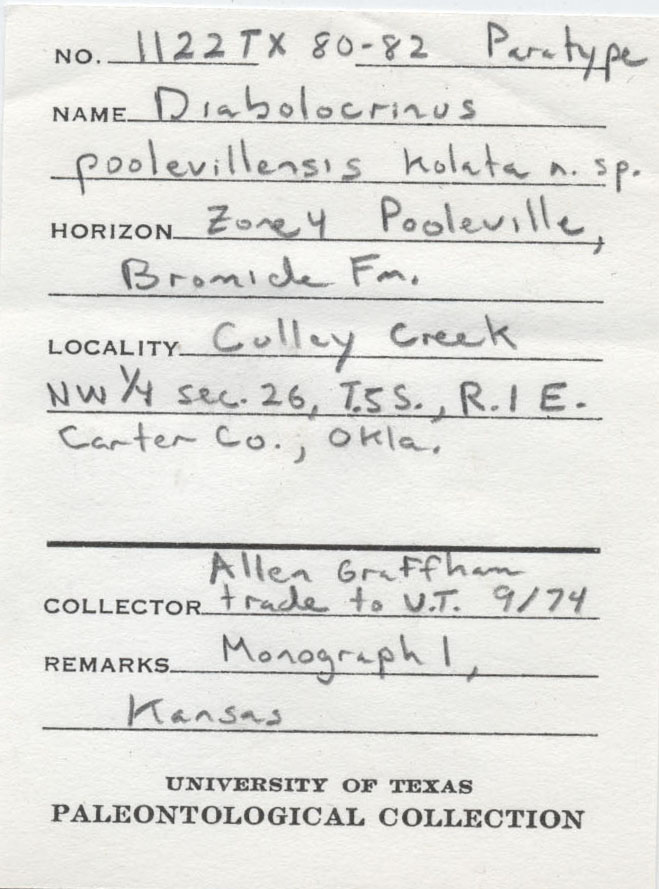 NO. 1122TX 80-82 Paratype
NAME Diabolocrinus
poolevillensis Kolata n. sp.
HORIZON Zone 4 Pooleville,
Bromide Fm.
LOCALITY Culley Creek
NW 1/4 sec. 26, T.5 S., R.1 E.
Carter Co., Okla.
Allen Graffham
COLLECTOR trade to U.T. 9/74
REMARKS Monograph 1,
Kansas
UNIVERSITY OF TEXAS
PALEONTOLOGICAL COLLECTION